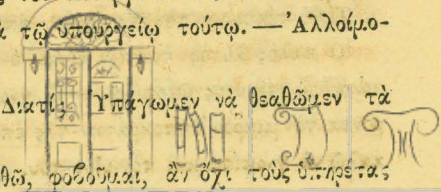 ὰ τῷ ὑπουργείῳ τούτῳ. — Ἀλλοίμο-
Διατί; Ὑπάγωμεν νὰ θεαθῶμεν τὰ
θῶ, φοβοῦμαι, ἂν ὄχι τοὺς ὑπηρέτας